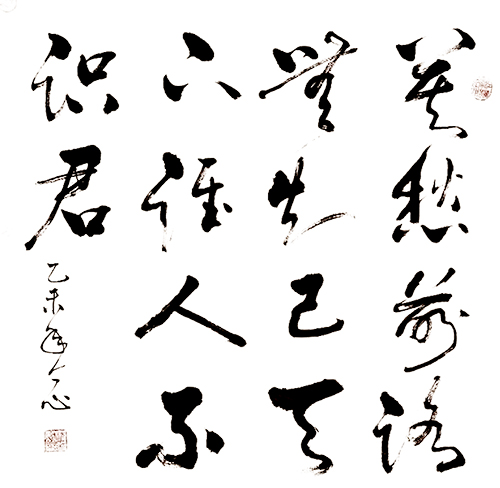 莫愁前路
無知己天
下谁人不
识君
乙未年